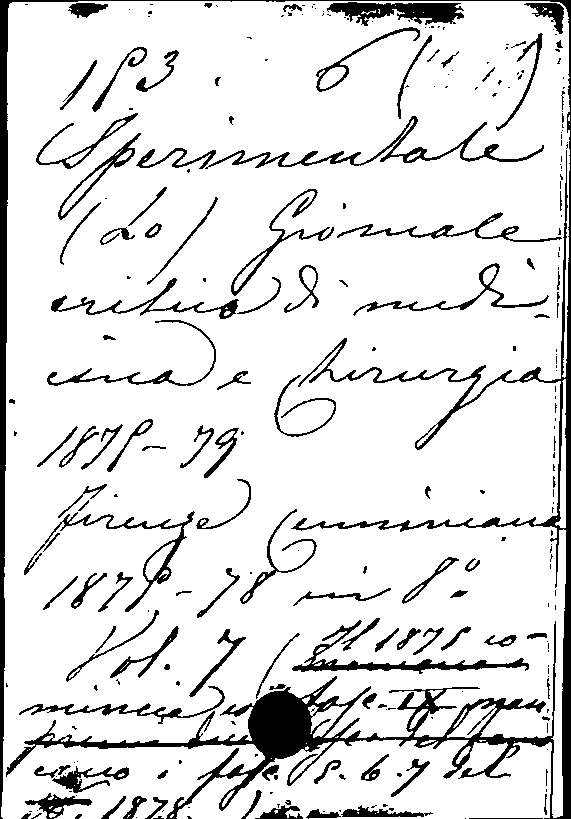 183. 6 (
Sperimentale
(Lo) Giornale
critico di medi-
cina e Chirurgia
1875-79
Firenze Cenniniana
1875-78 in 8°.
Vol. 7 (Il 1875 co-
mincia fasc. IX man
cano i fasc. 5. 6. 7 del
1878.)